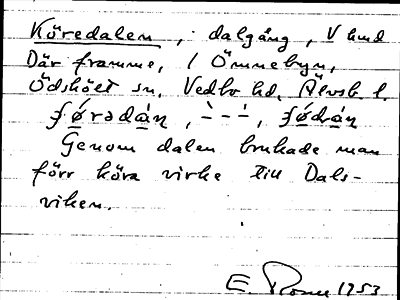 Köredalen, dalgång, V hmd
Där framme, i Ömmebyn,
Ödskölt sn, Vedbo hd, Älvsb l.
Genom dalen brukade man
förr köra virke till Dals-
viken.
E. 1953